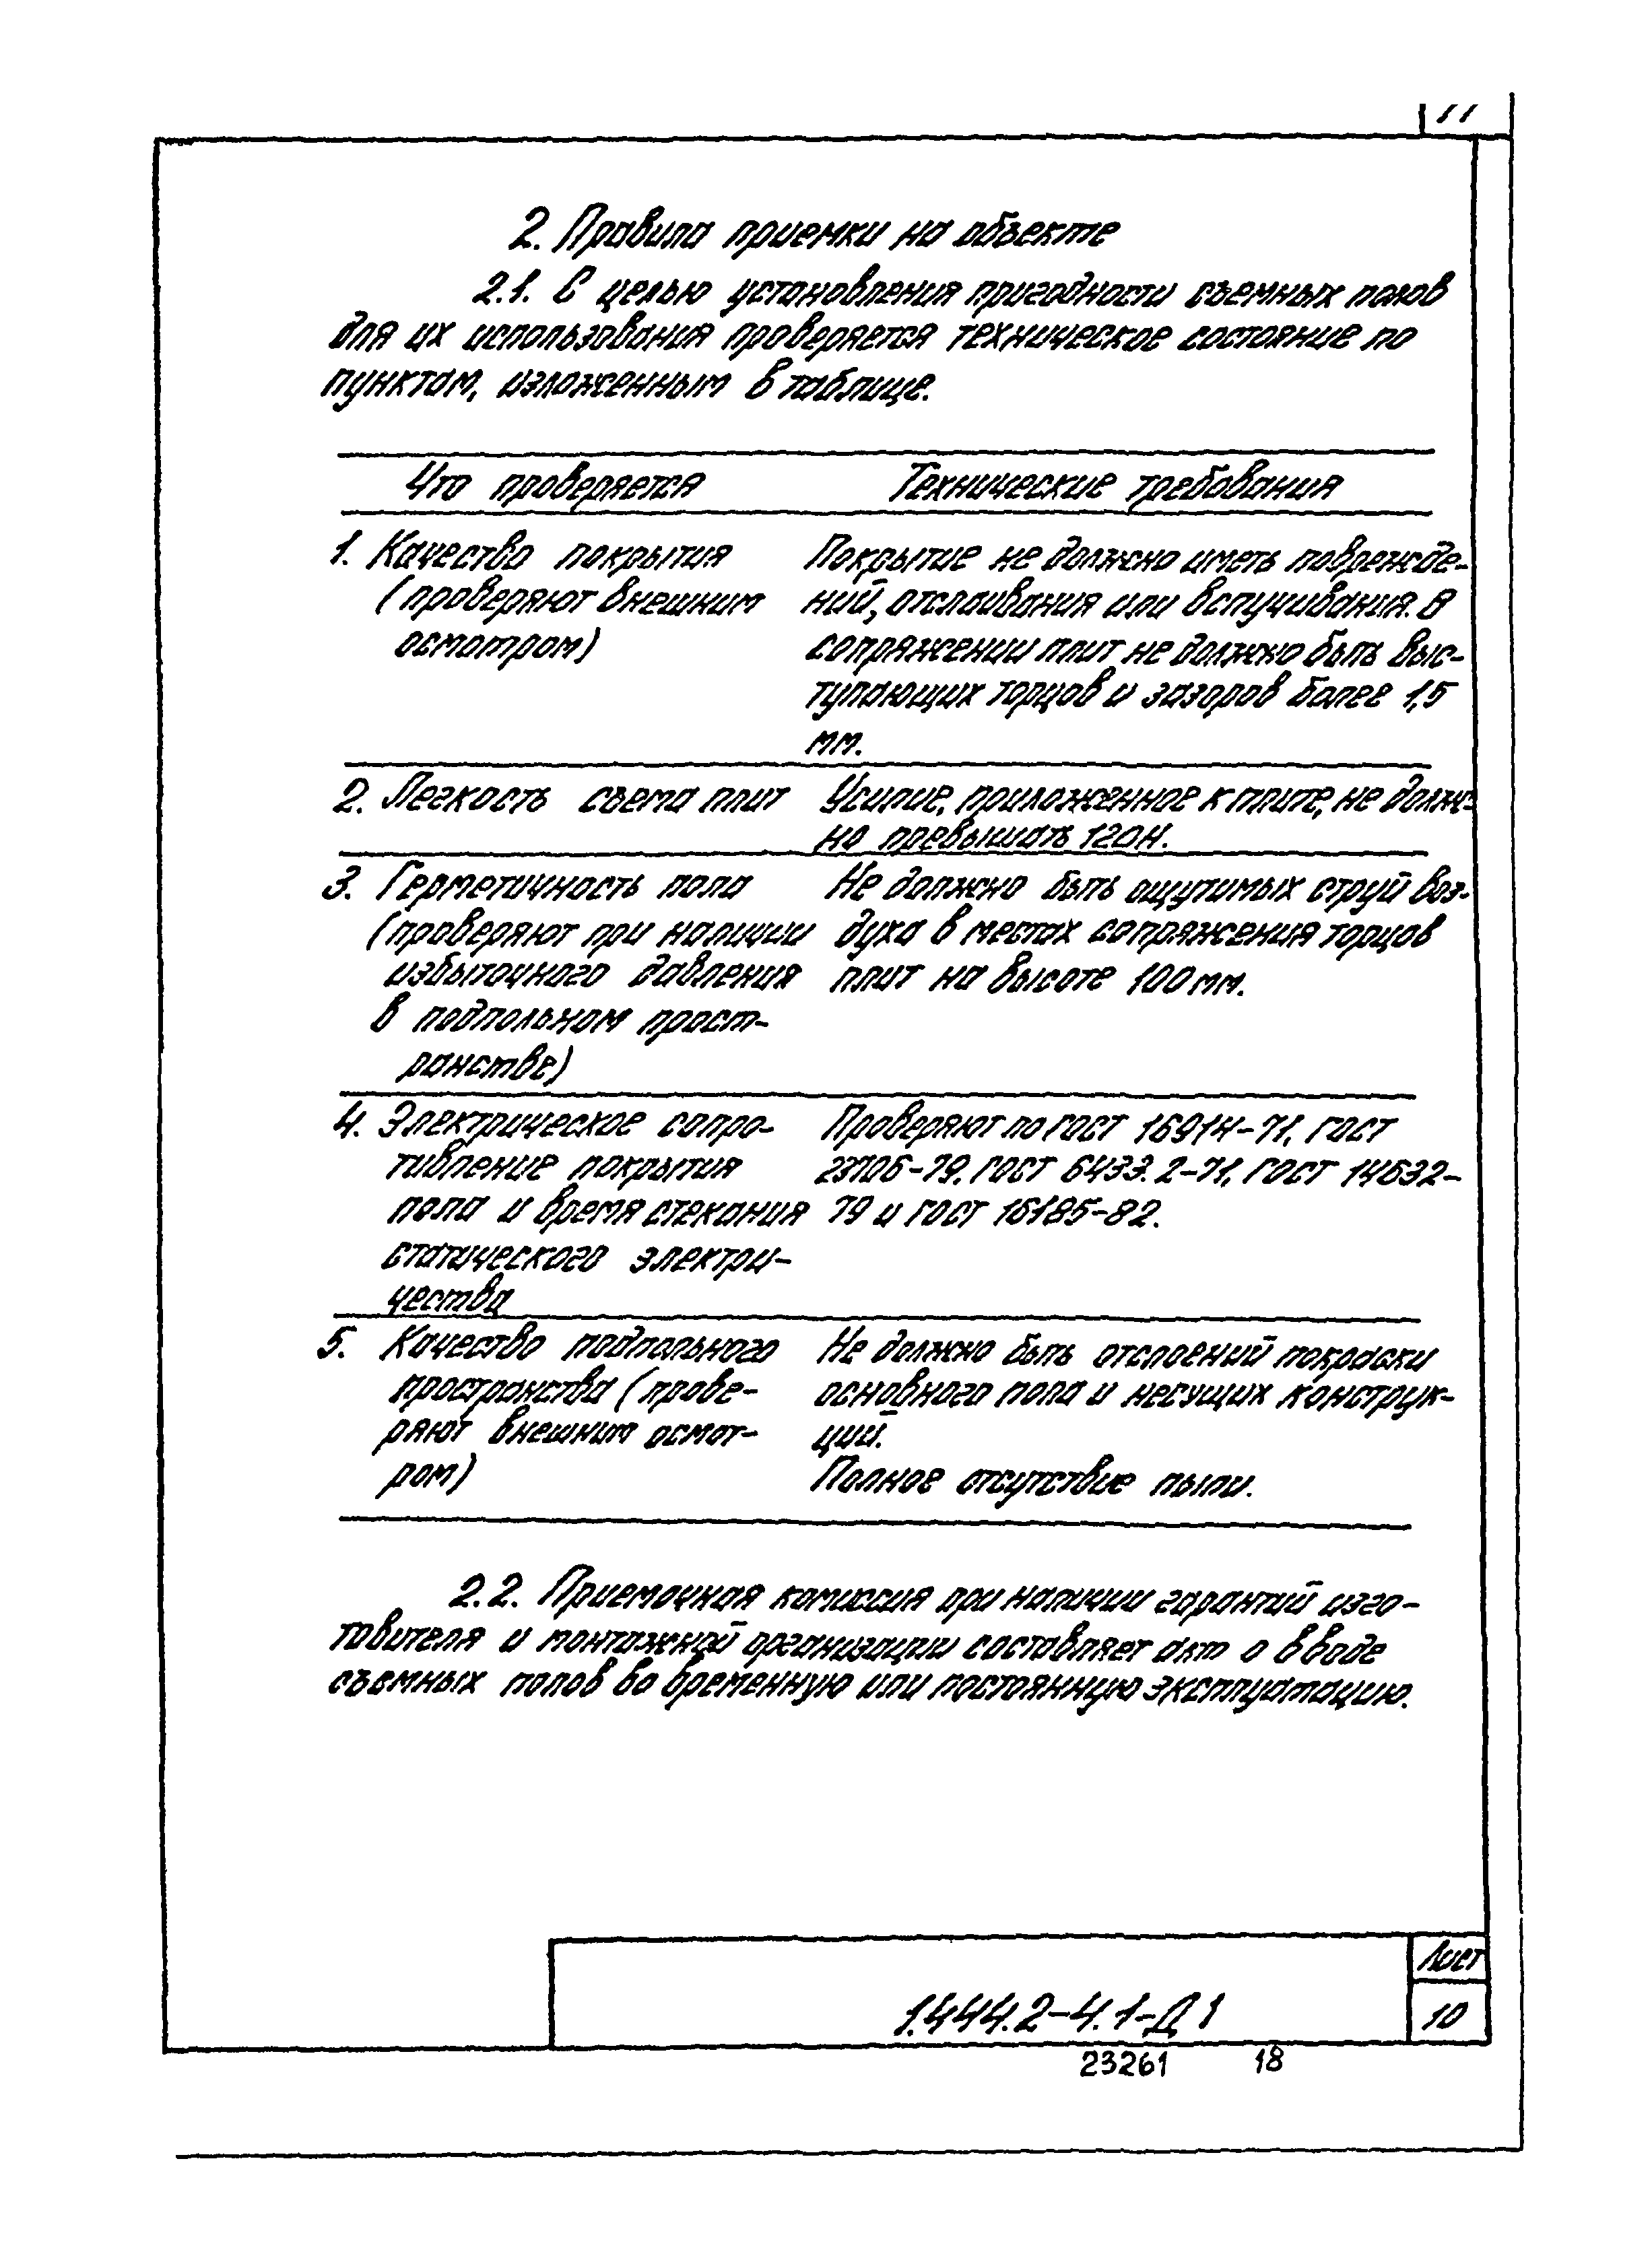 11
2. Правила приемки на объекте
2.1. С целью установления пригодности съемных полов
для их использования проверяется техническое состояние по
пунктам, изложенным в таблице.
Что проверяется Технические требования
1. Качество покрытия
(проверяют внешним
осмотром)
Покрытие не должно иметь поврежде-
ний, отслаивания или вспучивания. В
сопряжении плит не должно быть выс-
тупающих торцов и зазоров более 1,5
мм.
2. Легкость съема плит
Усилие, приложенное к плите, не долж-
но превышать 120Н.
3. Герметичность пола
(проверяют при наличии
избыточного давления
в подпольном прост-
ранстве)
Не должно быть ощутимых струй воз-
духа в местах сопряжения торцов
плит на высоте 100 мм.
4. Электрическое сопро-
тивление покрытия
пола и время стекания
статического электри-
чества
Проверяют по ГОСТ 16914-71, ГОСТ
23706-79, ГОСТ 6433.2-71, ГОСТ 14632-
79 и ГОСТ 16185-82.
5. Качество подпольного
пространства (прове-
ряют внешним осмот-
ром)
Не должно быть отслоений покраски
основного пола и несущих конструк-
ций.
Полное отсутствие пыли.
2.2. Приемочная комиссия при наличии гарантий изго-
товителя и монтажной организации составляет акт о вводе
съемных полов во временную или постоянную эксплуатацию.
Лист
1.444.2-4.1-Д1
10
23261 18